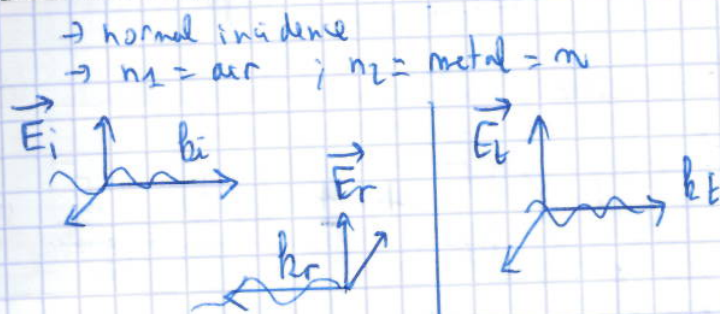 → normal incidence
→ n1 = air ; n2 = metal = n
E⃗i ki E⃗t
E⃗r kt
kr